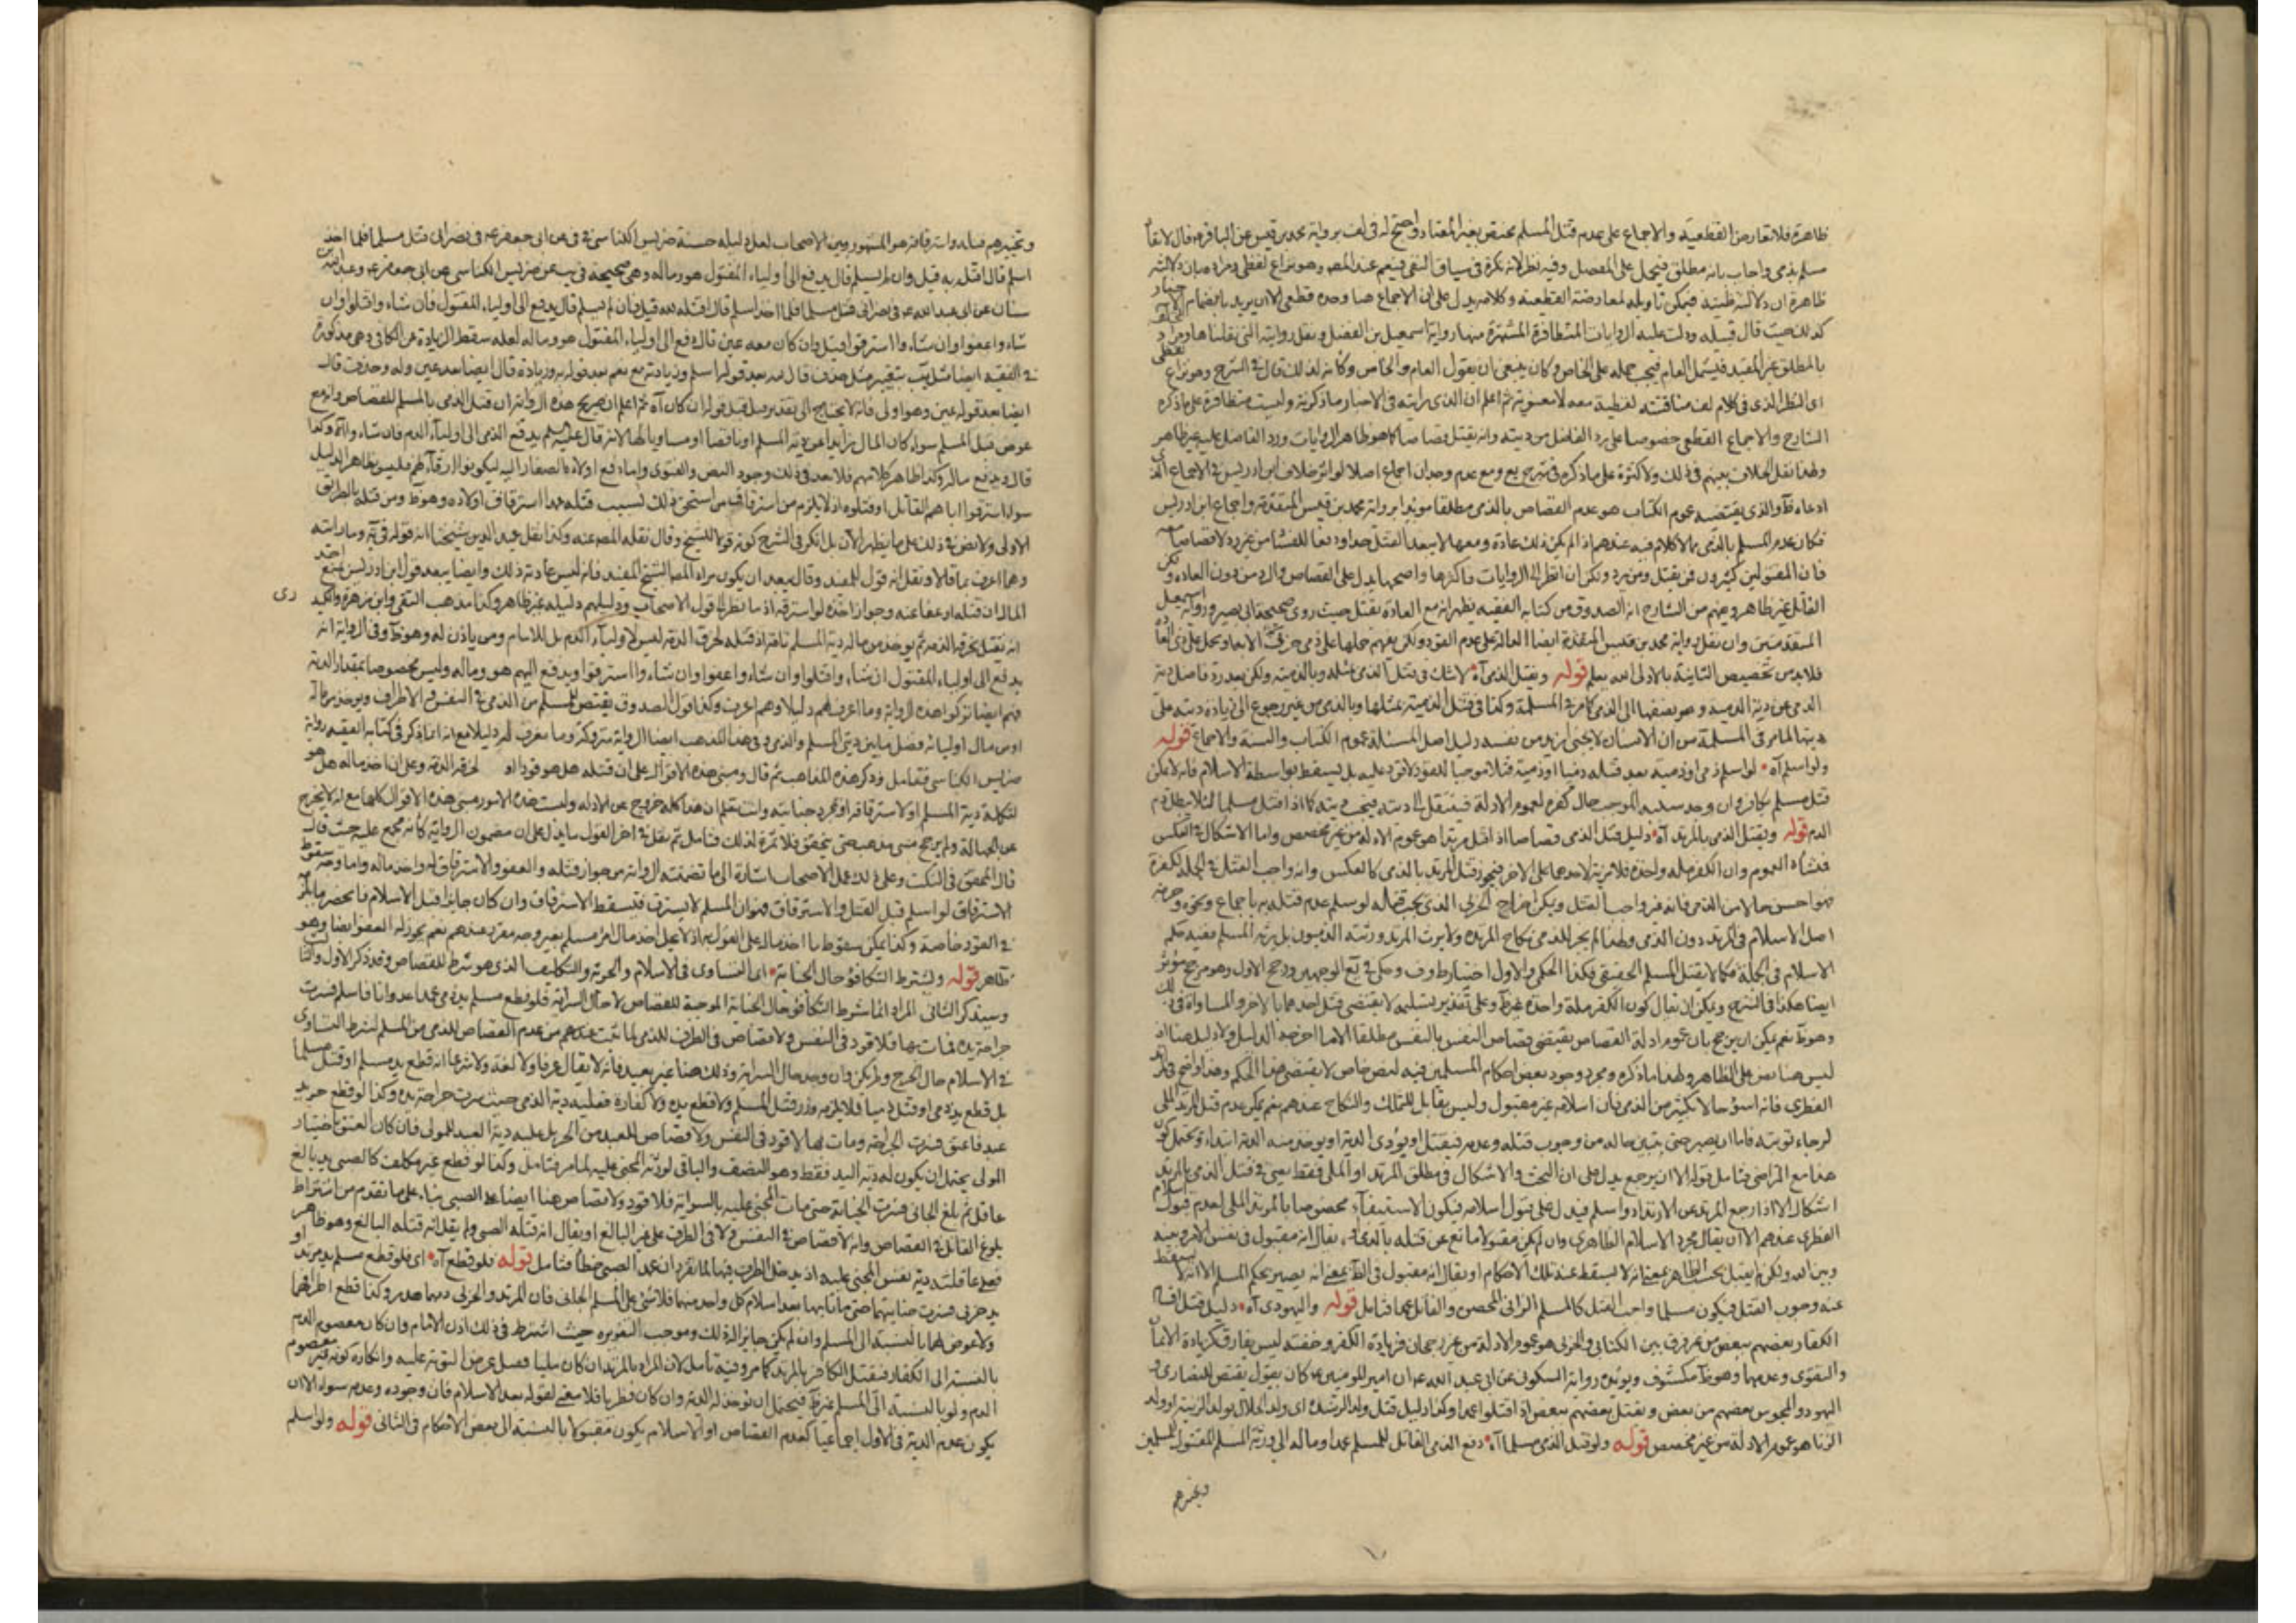 ظاهرة فلا تعارض القطعية والاجماع على عدم قتل المسلم مختص بغير المعتاد واحتج له فى لف برواية محمد بن قيس عن الباقر ع قال لا يقاد
مسلم بذمى واجاب بانه مطلق فيحمل على المفصل وفيه نظر لانه نكرة فى سياق النفى فيعم عند المص وهو نزاع لفظى
ظاهرة ان دلالته ظنية فيمكن تأويله لمعارضته القطعية وكلامه يدل على ان الاجماع هنا وحده قطعى الا ان يريد بانضمام
كذلك حيث قال قبيله ودلت عليه الروايات المتظافرة المشتهرة منها رواية اسمعيل بن الفضل ونقل روايته التى نقلناها ومراده
بالمطلق غير المقيد فيشمل العام فيجب حمله على الخاص وكان ينبغى ان يقول العام والخاص وكانه لذلك قال فى الشرح وهو نزاع لفظى
اى النظر الذى فى كلام لف مناقشة لفظية معه لا معنوية ثم اعلم ان الذى رايته فى الاخبار ما ذكرته وليست متظافرة على ما ذكره
الشارح والاجماع القطعى خصوصا على رد الفاضل من ديته وانه يقتل قصاصا كما هو ظاهر الروايات ورد الفاضل عليه غير ظاهر
ولهذا نقل الخلاف بينهم فى ذلك ولا كثرة على ما ذكره فى شرح يع ومع عدم وجدان اجماع اصلا لو اثر خلاف ابن ادريس فى الاجماع الذى
ادعاه ظ والذى يقتضيه عموم الكتاب هو عدم القصاص بالذمى مطلقا مؤيدا برواية محمد بن قيس المتقدمة واجماع ابن ادريس
فكان عدم المسلم بالذمى مما لا كلام فيه عندهم اذا لم يكن ذلك عادة ومعها لا يبعد القتل حدا ودفعا للفساد من غير رد لا قصاصا معه
فان المقتولين كثيرون فمن يقتل ومن يرد ولكن ان انظر الى الروايات فاكثرها واصحها يدل على القصاص والرد من دون العادة ولكن
القائل غير ظاهر ويفهم من الشارح انه الصدوق من كتابه الفقيه يظهر انه مع العادة يقتل حيث روى صحيحة ابى بصير ورواية اسمعيل
المتقدمتين وان نقل رواية محمد بن قيس المتقدمة ايضا الدالة على عدم القود ولكن يفهم حملها على ذمى
فلا بد من تخصيص الثانية بالاولى الله يعلم قوله ويقتل الذمى آه لا شك فى قتل الذمى بمثله وبالذمية ولكن بعد رد فاضل دية
الذمى عن دية الذمية وهو نصفها الى الذمى كما مر فى المسلمة وكذا فى قتل الذمية بمثلها وبالذمى من غير رجوع الى زيادة ديته على
ديتها لما مر فى المسلمة من ان الانسان لا يجنى ازيد من نفسه دليل اصل المسئلة عموم الكتاب والسنة والاجماع قوله
ولو اسلم آه لو اسلم ذمى او ذمية بعد قتله ذميا او ذمية قتلا موجبا للقود لا قود عليه بل يسقط بواسطة الاسلام فانه لا يمكن
قتل مسلم بكافر وان وجد سببه الموجب حال كفره لعموم الادلة فينتقل الى ديته فيجب ديته كما اذا قتل مسلما لئلا يطل دم
الدم قوله ويقتل الذمى بالمرتد آه دليل قتل الذمى قصاصا اذا قتل مرتدا هو عموم الادلة من غير مخصص واما الاشكال فى العكس
فمنشاه العموم وان الكفر ملة واحدة فلا مزية لاحدهما على الاخر فيجوز قتل المرتد بالذمى كالعكس وانه واجب القتل فى الجملة لكفره
فهو احسن حالا من الذمى فانه غير واجب القتل ويمكن اخراج الحربى الذى يجب قتاله لو سلم عدم قتله به باجماع ونحوه وحرمة
اصل الاسلام فى المرتد دون الذمى ولهذا لم يجز للذمى نكاح المرتدة ولا يرث المرتد ورثته الذميون بل يرثه المسلم ففيه حكم
الاسلام فى الجملة فكما لا يقتل المسلم الحقيقى فكذا الحكمى والاول اختيار ط وف وحكى فى يع الوجهين ورجح الاول وهو مرجح مؤثر
ايضا هكذا فى الشرح ويمكن ان يقال كون الكفر ملة واحدة غير ظ وعلى تقدير تسليمه لا يقتضى قتل احدهما بالاخر والمساواة فى ذلك
وهو ظ نعم يمكن ان يرجح بان عموم ادلة القصاص يقتضى قصاص النفس بالنفس مطلقا الا ما اخرجه الدليل ولا دليل هنا اذ
ليس هنا نص على الظاهر ولهذا ما ذكره ومجرد وجود بعض احكام المسلمين فيه لنص خاص لا يقتضى هذا الحكم وهذا واضح فى المرتد
الفطرى فانه اسوء حالا بكثير من الذمى فان اسلامه غير مقبول وليس بقابل للتملك والنكاح عندهم نعم يمكن عدم قتل المرتد الملى
لرجاء توبته فاما ان يصبر حتى يتبين حاله من وجوب قتله وعدمه فيقتل او يؤدى الدية او يوخذ منه الدية ابتداء ويحتمل كون
هذا مع التراضى فتامل قوله الا ان يرجع يدل على ان البحث والاشكال فى مطلق المرتد او الملى فقط يعنى فى قتل الذمى بالمرتد
اشكال الا اذا رجع المرتد عن الارتداد واسلم فيدل على قبول اسلامه فيكون الاستيفاء مخصوصا بالمرتد الملى لعدم قبول اسلام
الفطرى عندهم الا ان يقال مجرد الاسلام الظاهرى وان لم يكن مقبولا مانع عن قتله بالذمى او يقال انه مقبول فى نفس الامر وبينه
وبين الله ولكن لم يقبل بحسب الظاهر بمعنى انه لا يسقط عنه تلك الاحكام او يقال انه مقبول فى الظ بمعنى انه يصير بحكم المسلم الا انه لا يسقط
عنه وجوب القتل فيكون مسلما واجب القتل كالمسلم الزانى المحصن والقاتل عمدا فتامل قوله واليهودى آه دليل قتل اقسام
الكفار بعضهم ببعض من غير فرق بين الكتابى والحربى هو عموم الادلة من غير رجحان فزيادة الكفر وخفته ليس بفارق كزيادة الايمان
والتقوى وعدمها وهو ظ مكشوف ويؤيده رواية السكونى عن ابى عبد الله ع ان امير المؤمنين ع كان يقول يقتص للنصارى و
اليهود والمجوس بعضهم من بعض ويقتل بعضهم ببعض اذا قتلوا عمدا وكذا دليل قتل ولد الرشدة اى ولد الحلال بولد الزنية اى ولد
الزنا هو عموم الادلة من غير مخصص قوله ولو قتل الذمى مسلما آه دفع الذمى القاتل للمسلم عمدا وماله الى ورثة المسلم المقتول المسلمين
وتخييرهم
وتخييرهم بين قتله واسترقاقه هو المشهور بين الاصحاب لعل دليله حسنة ضريس الكناسى فى عن ابى جعفر ع فى نصرانى قتل مسلما فلما اخذ
اسلم قال اقتله به قيل وان لم يسلم قال يدفع الى اولياء المقتول هو وماله وهى صحيحة فى يب عن ضريس الكناسى عن ابى جعفر ع وعبد الله بن
سنان عن ابى عبد الله ع فى نصرانى قتل مسلما فلما اخذ اسلم قال اقتله به قيل فان لم يسلم قال يدفع الى اولياء المقتول فان شاء واقتلوا وان
شاء واعفوا وان شاء وا استرقوا قيل وان كان معه عين قال دفع الى اولياء المقتول هو وماله لعله سقط الزيادة عن الكافى وهى مذكورة
فى الفقيه ايضا مثل يب بتغيير مثل حذف قال به بعد قوله اسلم وزيادته مع نعم بعد قوله به وزيادة قال ايضا بعد عين وله وحذفت قال
ايضا بعد قوله عين وهو اولى فانه لا يحتاج الى تقدير مثل قيل قبل قوله ان كان آه ثم اعلم ان صريح هذه الرواية ان قتل الذمى بالمسلم للقصاص
عوض قتل المسلم سواء كان المال زايدا عن دية المسلم او ناقصا او مساويا لها لانه قال عليه السلم يدفع الذمى الى اولياء الدم فان شاء والآه وكذا
قال ويدفع ماله وكذا ظاهر كلامهم فلا بعد فى ذلك وجود النص والفتوى واما دفع اولاده الصغار اليه ليكونوا ارقاء لهم فليس بظاهر الدليل
سواء استرقوا اباهم القاتل او قتلوه اذ لا يلزم من استرقاق من استحق ذلك بسبب قتله عمدا استرقاق اولاده وهو ظ ومن قتله بالطريق
الاولى ولا نص فى ذلك على ما يظهر الان بل انكر فى الشرح كونه قولا للشيخ وقال نقله المص عنه وكذا نقل عميد الدين شيخنا انه قوله فى ية وما رايته
وهما اعرف بما قالا ونقل انه قول للمفيد وقال يبعد ان يكون مراد المص بالشيخ المفيد فانه ليس عادته ذلك وايضا يبعد قول ابن ادريس اخذ
المال ان قتله او عفا عنه وجواز اخذه لو استرقه اذ ما نظر الى قول الاصحاب ودليلهم ودليله غير ظاهر وكذا مذهب التقى وابن زهرة والكيدرى
انه يقتل بخرقه الذمة ثم يوخذ من ماله دية المسلم تامة اذ قتله لخرق الذمة ليس لاولياء الدم بل للامام ومن ياذن له وهو ظ وفى الرواية انه
يدفع الى اولياء المقتول ان شاء واقتلوا وان شاء واعفوا وان شاء وا استرقوا ويدفع اليهم هو وماله وليس مخصوصا بمقدار الدية
فهم ايضا تركوا هذه الرواية وما اعرف لهم دليلا وهم اعرف وكذا قول الصدوق يقتص للمسلم من الذمى فى النفس والاطراف ويوخذ من ماله
او من مال اوليائه فضل ما بين ديتى المسلم والذمى وفى هذا المذهب ايضا الرواية متروكة وما نعرف له دليلا مع انه انما ذكر فى كتابه الفقيه رواية
ضريس الكناسى فتامل وذكر هذه المذاهب ثم قال ومبنى هذه الاقوال على ان قتله هل هو قود او لخرقه الذمة وعلى ان اخذ ماله هل هو
لتكملة دية المسلم او لاسترقاقه او مجرد جنايته وانت تعلم ان هذا كله خروج عن الادلة وليست هذه الامور مبنى هذه الاقوال كلها مع انه لا يخرج
عن الجهالة ولم يرجح شئ مذهب حتى يتحقق فلا ثمرة لذلك فتامل ثم نقل فى اخر القول ما يدل على ان مضمون الرواية كانه مجمع عليه حيث قال
قال المحقق فى النكت وعلى ذلك عمل الاصحاب اشارة الى ما تضمنته الرواية من جواز قتله والعفو والاسترقاق له واخذ ماله واما وجه سقوط
الاسترقاق لو اسلم قبل القتل والاسترقاق فهو ان المسلم لا يسترق فيسقط الاسترقاق وان كان جايزا قبل الاسلام فانحصر ماله
فى القود خاصة وكذا يمكن سقوط ما اخذ ماله على القول به اذ لا يحل اخذ مال امرء مسلم بغير وجه مقرر عندهم نعم يجوز له العفو ايضا وهو
ظاهر قوله ويشترط التكافؤ حال الجناية اى التساوى فى الاسلام والحرية والتكليف الذى هو شرط للقصاص وقد ذكر الاول والثالث
وسيذكر الثانى المراد انما يشترط التكافؤ حال الجناية الموجبة للقصاص لا حال السراية فلو قطع مسلم يد ذمى عمدا عدوانا فاسلم فسرت
جراحة يده فمات بها فلا قود فى النفس ولا قصاص فى الطرف للذمى لما ثبت عندهم من عدم القصاص للذمى من المسلم لشرط التساوى
فى الاسلام حال الجرح ولم يكن وان وجد حال السراية وذلك هنا غير بعيد فانه لا يقال عرفا ولا لغة ولا شرعا انه قطع يد مسلم او قتل مسلما
بل قطع يد ذمى او قتل ذميا فلا يلزمه وزر قتل المسلم ولا قطع يده ولا كفارة فعليه دية الذمى حيث سرت جراحة يده وكذا لو قطع حر يد
عبد فاعتق فسرت الجراحة ومات لها لا قود فى النفس ولا قصاص للعبد من الحر بل عليه دية العبد للمولى فان كان العتق باختيار
المولى يحتمل ان يكون له دية اليد فقط وهو النصف والباقى لورثة المجنى عليه لما مر فتامل وكذا لو قطع غير مكلف كالصبى يد بالغ
عاقل ثم بلغ الجانى فسرت الجناية حتى مات المجنى عليه بالسراية فلا قود ولا قصاص هنا ايضا على الصبى بناء على ما تقدم من اشتراط
بلوغ القاتل فى القصاص وانه لا قصاص فى النفس ولا فى الطرف على غير البالغ او يقال انه قتله الصبى ولم يقل انه قتله البالغ وهو ظاهر
فعلى عاقلته دية نفس المجنى عليه اذ يدخل الطرف فيها لما تقرر ان عمد الصبى خطأ فتامل قوله فلو قطع آه اى فلو قطع مسلم يد مرتد او
يد حربى فسرت جنايتهما حتى ماتا بها بعد اسلام كل واحد منهما فلا شئ على المسلم الجانى فان المرتد والحربى دمهما هدر وكذا قطع اطرافهما
ولا عوض لهما بالنسبة الى المسلم وان لم يكن جايزا لذلك وموجب التعزيره حيث اشترط فى ذلك اذن الامام وان كان معصوم الدم
بالنسبة الى الكفار فيقتل الكافر بالمرتد كما مر وفيه تامل لان المراد بالمرتد ان كان مليا فصل عرض التوبة عليه وانكاره كونه غير معصوم
الدم ولو بالنسبة الى المسلم غير ظ فيحتمل ان توخذ له الدية وان كان فطريا فلا معنى لقوله بعد الاسلام فان وجوده وعدمه سواء الا ان
يكون عدم الدية فى الاول اجماعيا كعدم القصاص او الاسلام يكون مقبولا بالنسبة الى بعض الاحكام فى الثانى قوله ولو اسلم